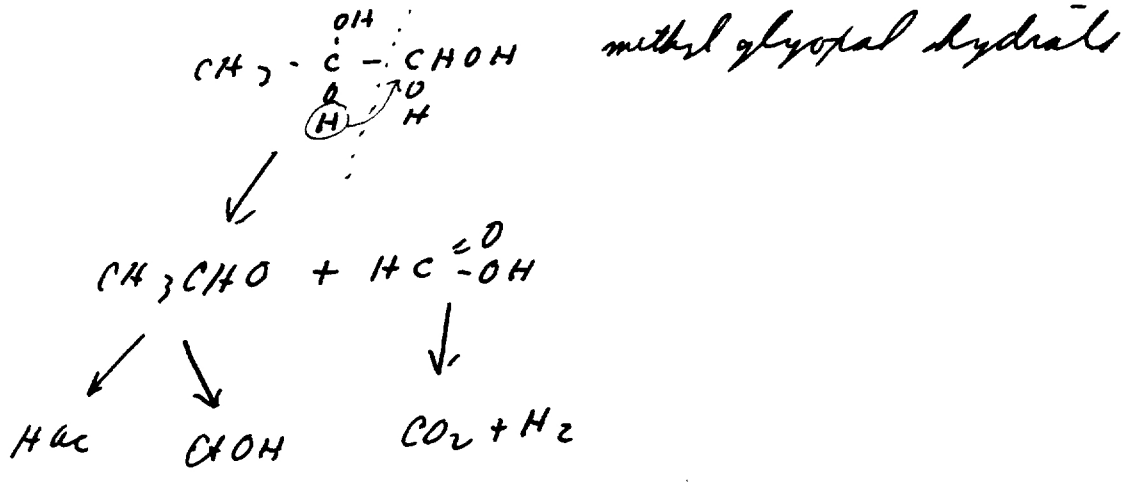 OH
CH3 - C - CHOH methyl glyoxal hydrate
O O
H H
CH3CHO + HC =O -OH
HAc EtOH CO2 + H2